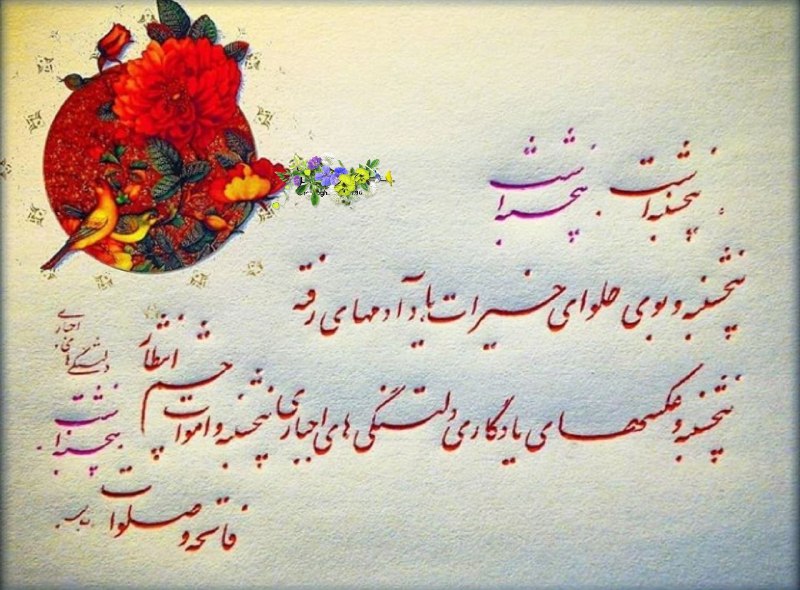 پنجشنبه است پنجشنبه است
پنجشنبه و بوی حلوای خیرات یاد آدمهای رفته
پنجشنبه و عکسهای یادگاری دلتنگی های اجباری پنجشنبه و اموات چشم انتظار
فاتحه و صلوات
دلتنگی های
اجباری
پنجشنبه است